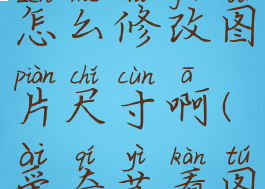 怎么修改图
piàn chǐ cùn ā
片尺寸啊(
ài qí yì kàn tú
爱奇艺看图